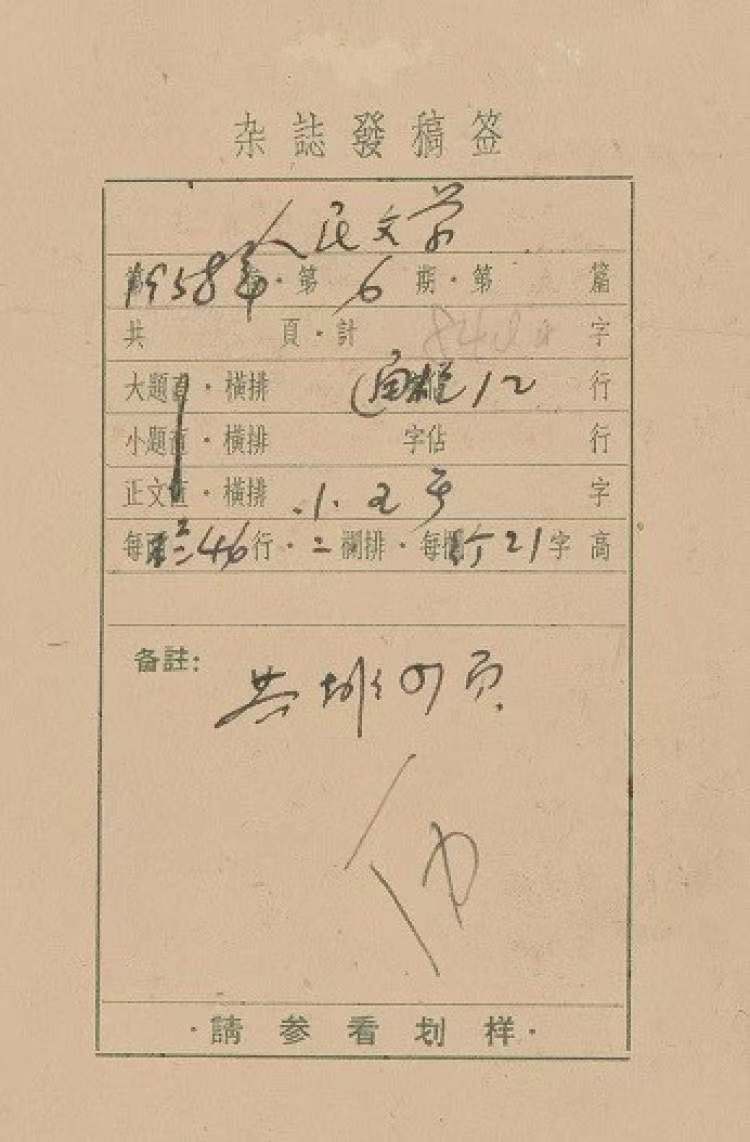 杂誌發稿签
人民文学
1958年·第6期·第 篇
共 頁·計 字
大題直·橫排 通栏12行
小題直·橫排 字佔 行
正文直·橫排 小五号 字
每 46行·二欄排·每欄 21字高
备註:
共排 页
·請参看划样·